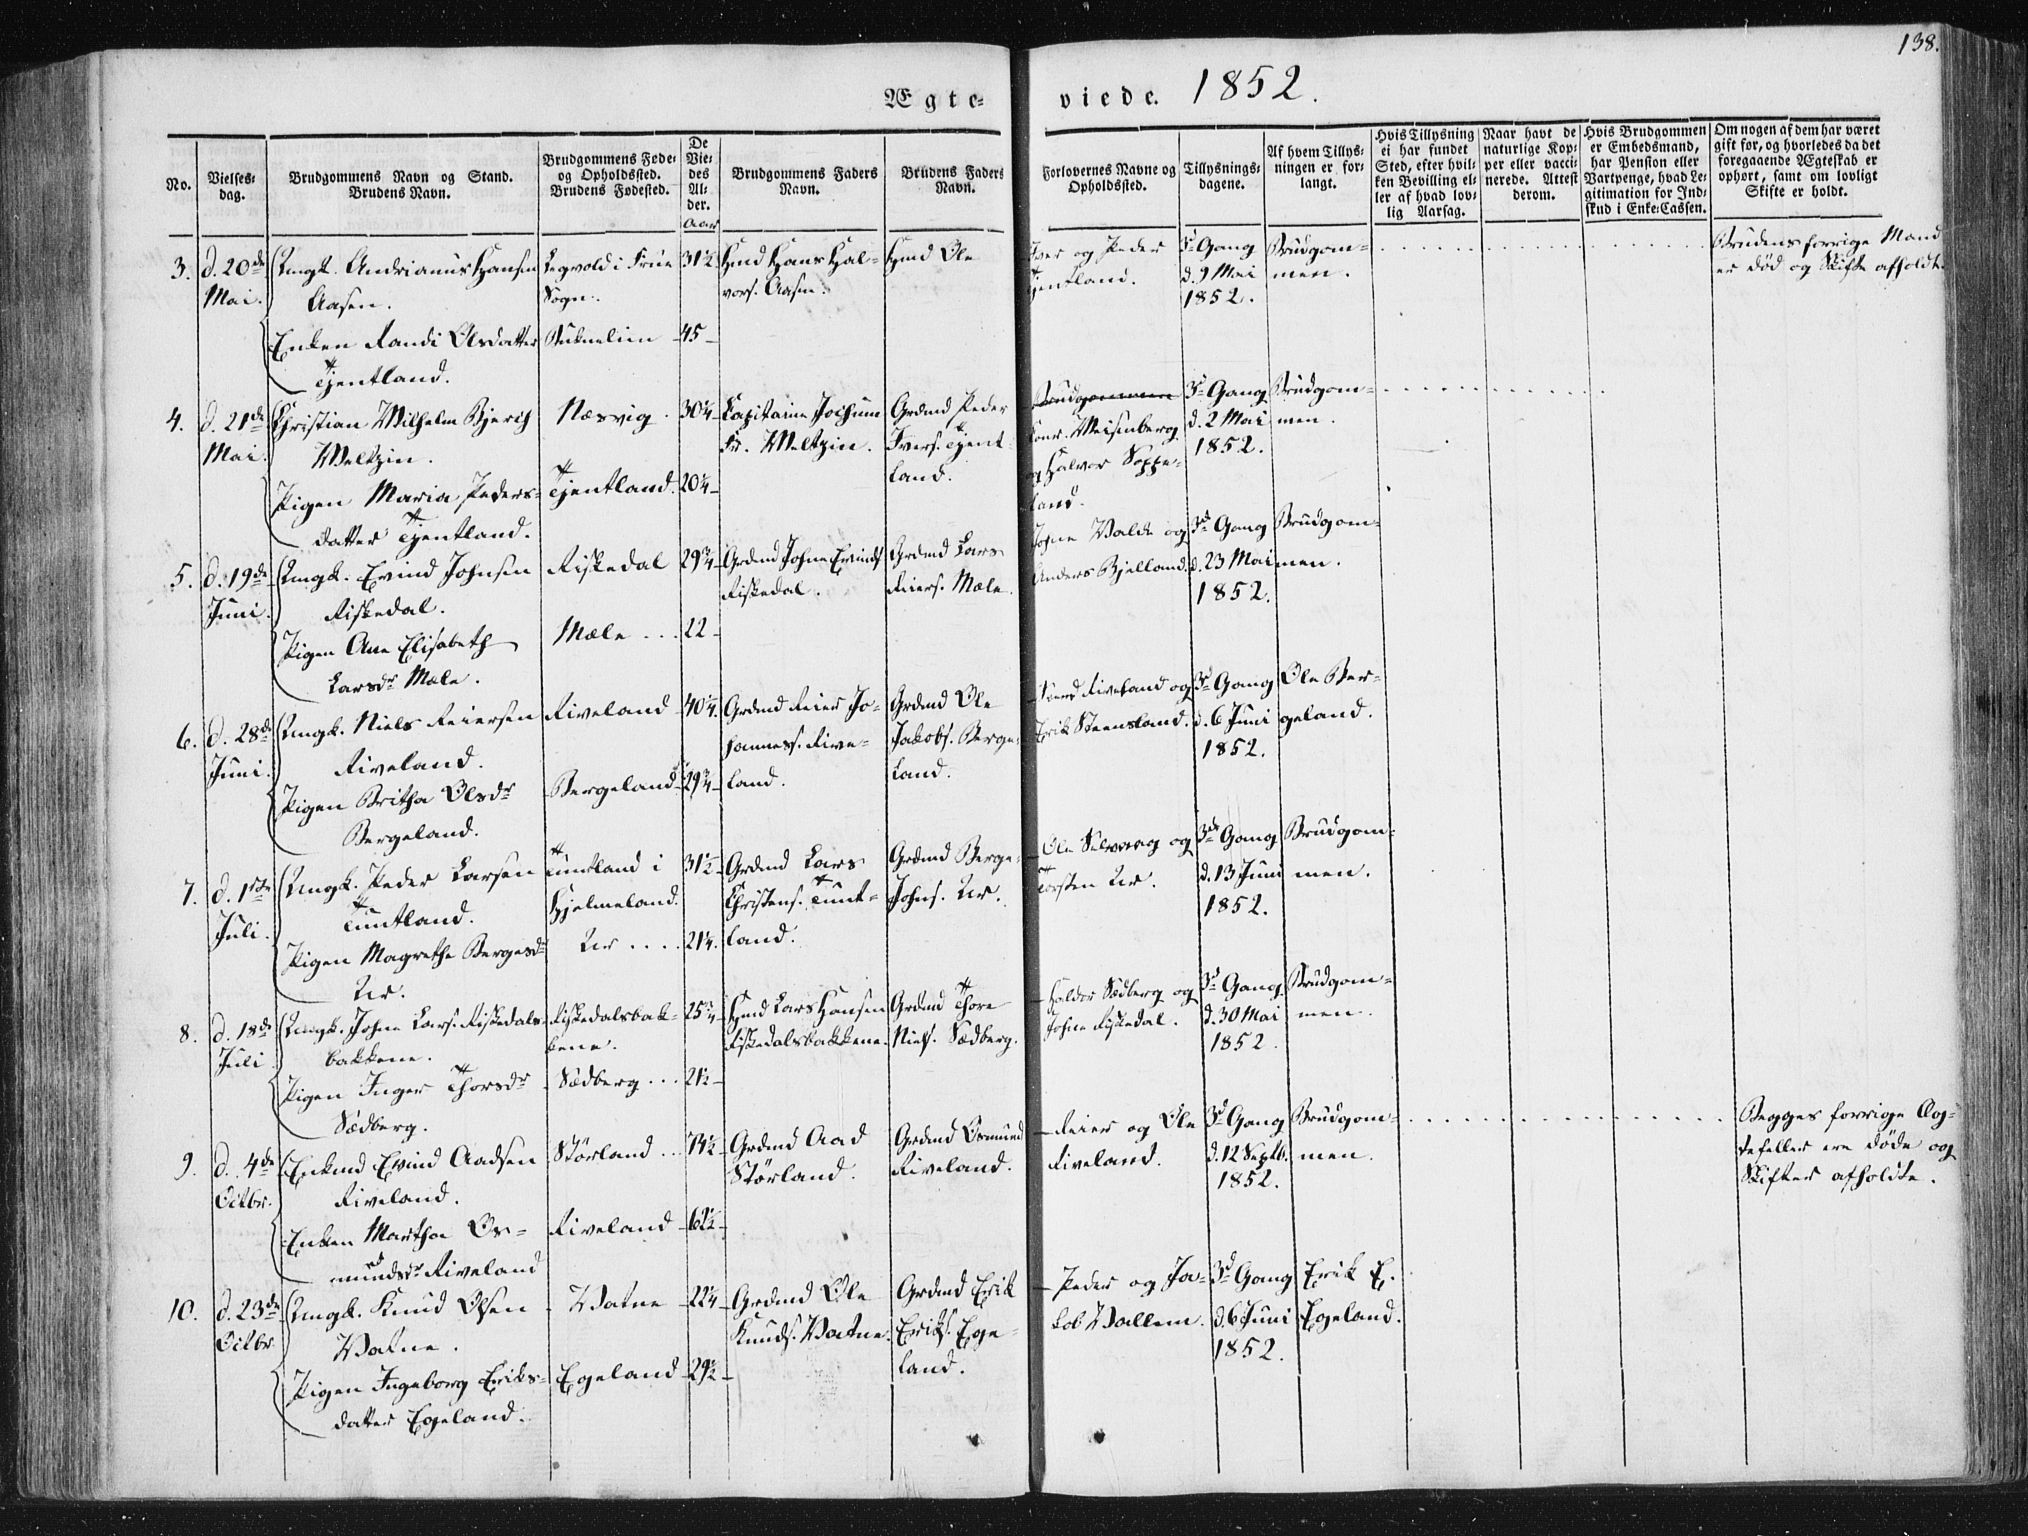 138.
Ægte-
viede. 1852.
No.
Vielses-
dag.
Brudgommens Navn og Stand.
Brudens Navn.
Brudgommens Føde-
og Opholdssted.
Brudens Fødested.
De
Vie-
des
Al-
der.
Aar
Brudgommens Faders
Navn.
Brudens Faders
Navn.
Forlovernes Navne og
Opholdssted.
Tillysnings-
dagene.
Af hvem Tillys-
ningen er for-
langt.
Hvis Tillysning
ei har fundet
Sted, efter hvil-
ken Bevilling el-
ler af hvad lov-
lig Aarsag.
Naar havt de
naturlige Kop-
per eller vacci-
nerede. Attest
derom.
Hvis Brudgommen
er Embedsmand,
har Pension eller
Vartpenge, hvad Le-
gitimation for Ind-
skud i Enke-Cassen.
Om nogen af dem har været
gift før, og hvorledes da det
foregaaende Ægteskab er
ophørt, samt om lovligt
Skifte er holdt.
3.
d. 20de
Mai.
Ungk. Andrianus Hansen
Aasen.
Enken Randi Olsdatter
Tjentland.
i Frue
Sogn.
31½
45
Hmd Hans Hal-
vors. Aasen.
Hmd Ole
Iver og Peder
Tjentland.
3d Gang
d. 9 Mai
1852.
Brudgom-
men.
Brudens forrige Mand
er død og Skifte afholdt.
4.
d. 21de
Mai.
Christian Wilhelm Bjerch
Weltzin.
Pigen Maria Peders-
datter Tjentland.
Næsvig
Tjentland.
30¼
20¼
Capitaine Jochum
Fr. Weltzin.
Grdmd Peder
Ivers. Tjent-
land.
Brudgommen
Conr. Meisenberg
og Halvor Soppe-
land.
3d Gang
d. 2 Mai
1852.
Brudgom-
men.
5.
d. 19de
Juni.
Ungk. Evind Johnsen
Riskedal.
Pigen Ane Elisabeth
Larsdr Mæle.
Riskedal
Mæle
29¾
22
Grdmd Johne Evinds.
Riskedal.
Grdmd Lars
Reiers. Mæle.
Johne Valde og
Anders Bjelland.
3d Gang
d. 23 Mai
1852.
Brudgom-
men.
6.
d. 28de
Juni.
Ungk. Niels Reiersen
Riveland.
Pigen Britha Olsdr
Bergeland.
Riveland
Bergeland
40¼
29¾
Grdmd Reier Jo-
hanness. Rive-
land.
Grdmd Ole
Jakobs. Berge-
land.
Riveland og
Erik Steensland.
3d Gang
d. 6 Juni
1852.
Ole Ber-
geland.
7.
d. 1ste
Juli.
Ungk. Peder Larsen
Tuntland.
Pigen Magrethe Bergesdr
Ur.
Tuntland i
Hjelmeland.
Ur
31½
21¼
Grdmd Lars
Christens. Tunt-
land.
Grdmd Berge
Johns. Ur.
Ole Selvaag og
Torsten Ur.
3de Gang
d. 13 Juni
1852.
Brudgom-
men.
8.
d. 18de
Juli
Ungk. Johne Lars. Riskedals-
bakkene.
Pigen Inger Thorsdr
Sædberg.
Riskedalsbak-
kene.
Sædberg
25¾
21½
Hmd Lars Hansen
Riskedalsbakkene.
Grdmd Thore
Niels. Sædberg.
Halder Sædberg og
Johne Riskedal.
3d Gang
d. 30 Mai
1852.
Brudgom-
men.
9.
d. 4de
Octbr.
Enkmd Evind Aadsen
Riveland.
Enken Martha Os-
mundsdr Riveland
Størland
Riveland
74½
62½
Grdmd Aad
Størland.
Grdmd Osmund
Riveland.
Reier og Ole
Riveland.
3d Gang
d. 12 Septb.
1852.
Brudgom-
men.
Begges forrige Æg-
tefeller ere døde og
Skifter afholdte.
10.
d. 23de
Octbr.
Ungk. Knud Olsen
Vatne.
Pigen Ingeborg Eriks-
datter Egeland.
Vatne
Egeland
22¼
29½
Grdmd Ole
Knuds. Vatne.
Grdmd Erik
Eriks. Ege-
land.
Peder og Ja-
kob Vallem.
3d Gang
d. 6 Juni
1852.
Erik E.
Egeland.